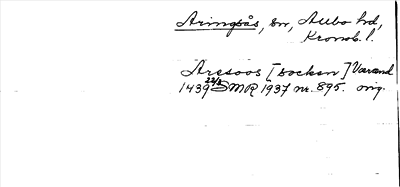 Aringsås, sn, Allbo hd,
Kronob. l.
Aresoos [socken] Värend
1439 22/3 SMR 1937 nr. 895. orig.